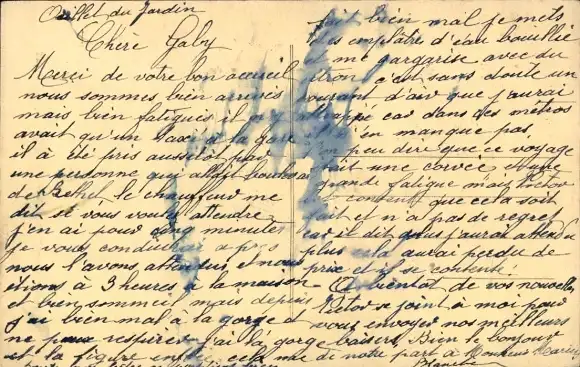 Oeillet du Jardin
Chère Gaby
Merci de votre bon accueil
nous sommes bien arrivés
mais bien fatigués il n'y
avait qu'un taxi à la gare
il à été pris aussitôt par
une personne qui allait
de Bethel, le chauffeur me
dit si vous voulez attendre
j'en ai pour cinq minutes
je vous conduirai après
nous l'avons attendus et nous
étions à 3 heures à la maison
et bien sommeil mais depuis
j'ai bien mal à la gorge et
ne peux respirer j'ai la gorge
et la figure enflée cela me
fait bien mal je mets
des emplâtre d'eau bouillie
et me gargarise avec du
citron c'est sans doute un
courant d'air que j'aurai
attrappé car dans des métros
il n'en manque pas,
on peu dire que ce voyage
fait une corvée et une
grande fatigue mais Victor
est content que cela soit
fait et n'a pas de regret
car il dit plus j'aurai attendu
plus cela aurai perdu de
prix et il se contente.
A bientôt de vos nouvelles
Victor se joint à moi pour
vous envoyer nos meilleurs
baisers, Bien le bonjour
de notre part à Monsieur Marius
Blanche